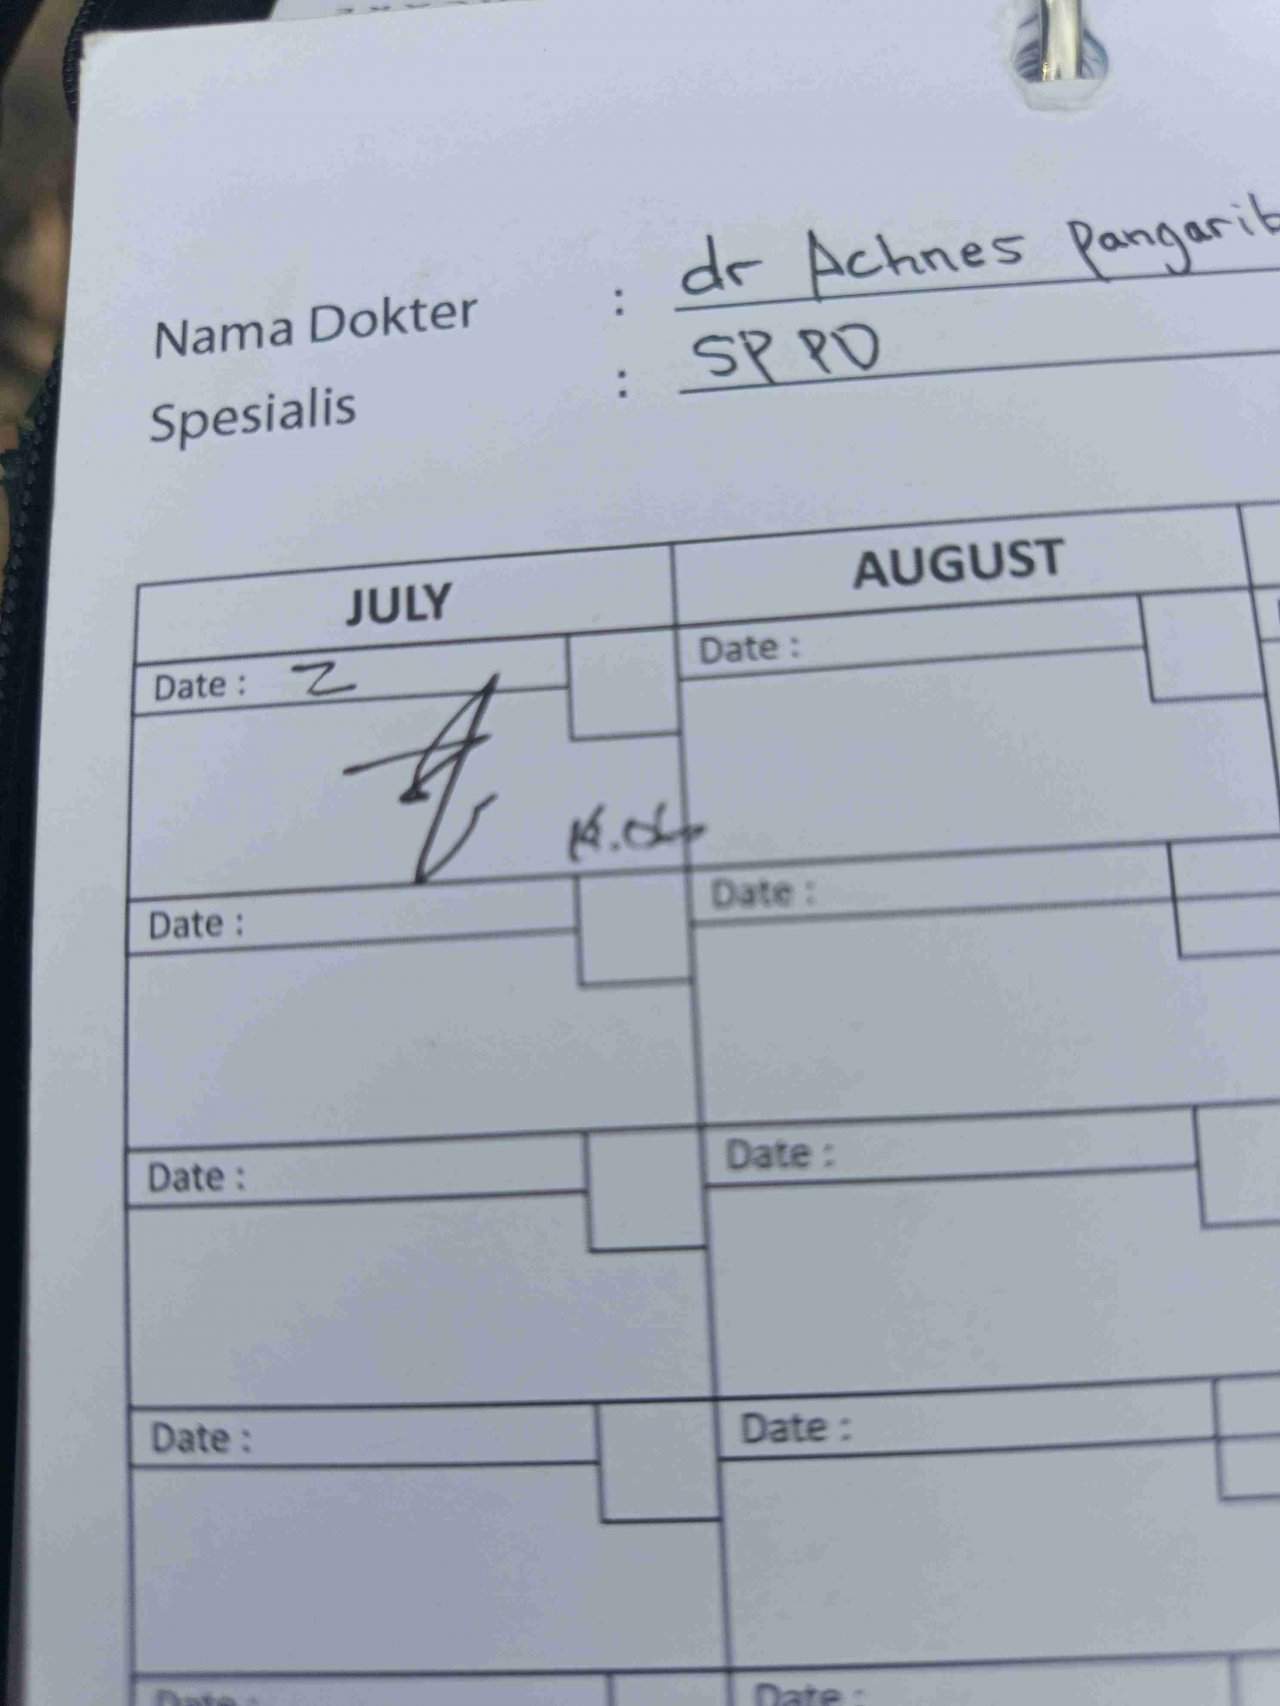 Nama Dokter : dr Achnes Pangarib
Spesialis : SP PD
JULY AUGUST
Date : 2 Date :
Date : Date :
Date : Date :
Date : Date :
Date : Date :